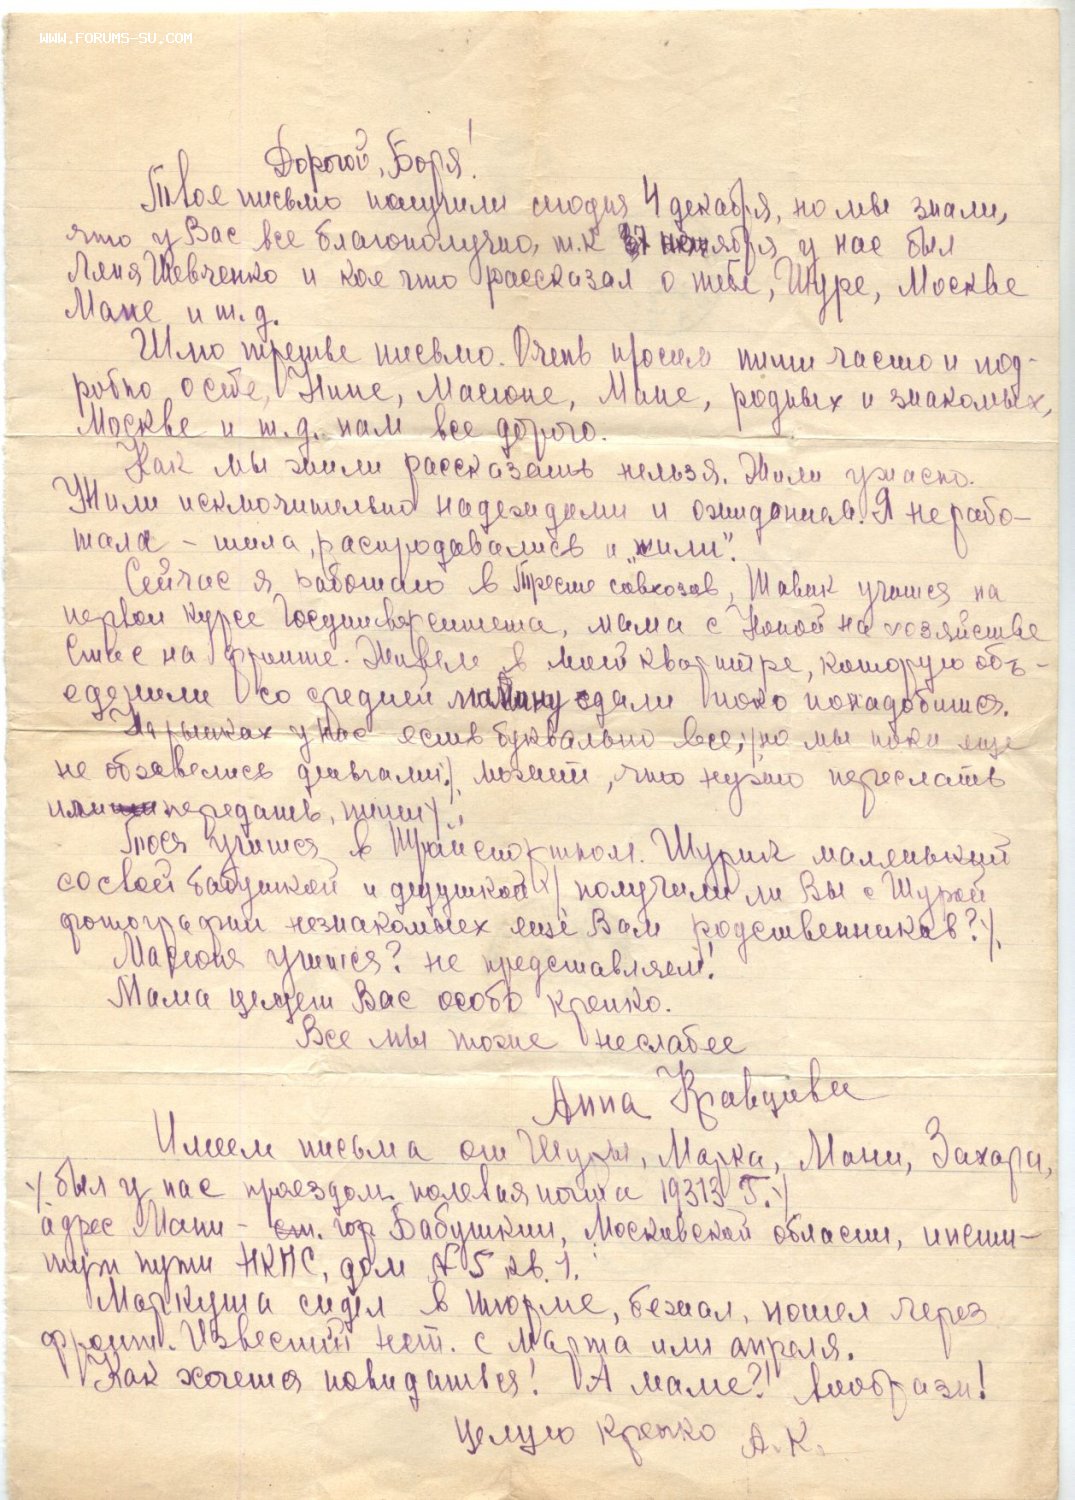 WWW.FORUMS-SU.COM
Дорогой, Боря!
Твое письмо получили сегодня 4 декабря, но мы знали,
что у Вас все благополучно, т.к ноября у нас был
Леня Шевченко и кое что рассказал о тебе, Шуре, Москве
Мане и т.д.
Шлю третье письмо. Очень просим пиши часто и под-
робно о себе, Нине, Масюне, Мане, родных и знакомых,
Москве и т.д. нам все дорого.
Как мы жили рассказать нельзя. Жили ужасно.
Жили исключительно надеждами и ожиданием. Я не рабо-
тала – шила, распродавались и „жили".
Сейчас я работаю в Тресте совхозов, Шавик учится на
первом курсе Госуниверситета, мама с Нопой на хозяйстве
Стас на фронте. Живем в моей квартире, которую объ-
еденили со средней сдали пока понадобится.
На рынках у нас есть буквально все, но мы пока еще
не обзавелись деньгами, может, что нужно переслать
или передать, пиши.
Тося учится в Транспортном. Шурик маленький
со своей бабушкой и дедушкой получили ли Вы с Шурой
фотографии незнакомых ещё Вам родственников?
Масюня учится? не представляем!
Мама целует Вас особо крепко.
Все мы тоже неслабее
Анна Кравцова
Имеем письма от Шуры, Марка, Мани, Захара,
был у нас проездом. полевая почта 19313 Г.
адрес Мани – ст. гор Бабушкин, Московской области, инсти-
тут пути НКПС, дом № 5 кв. 1.
Маркуша сидел в тюрме, бежал, пошел через
фронт. Известий нет. с марта или апреля.
Как хочется повидаться! А маме?! Вообрази!
Целую крепко А.К.